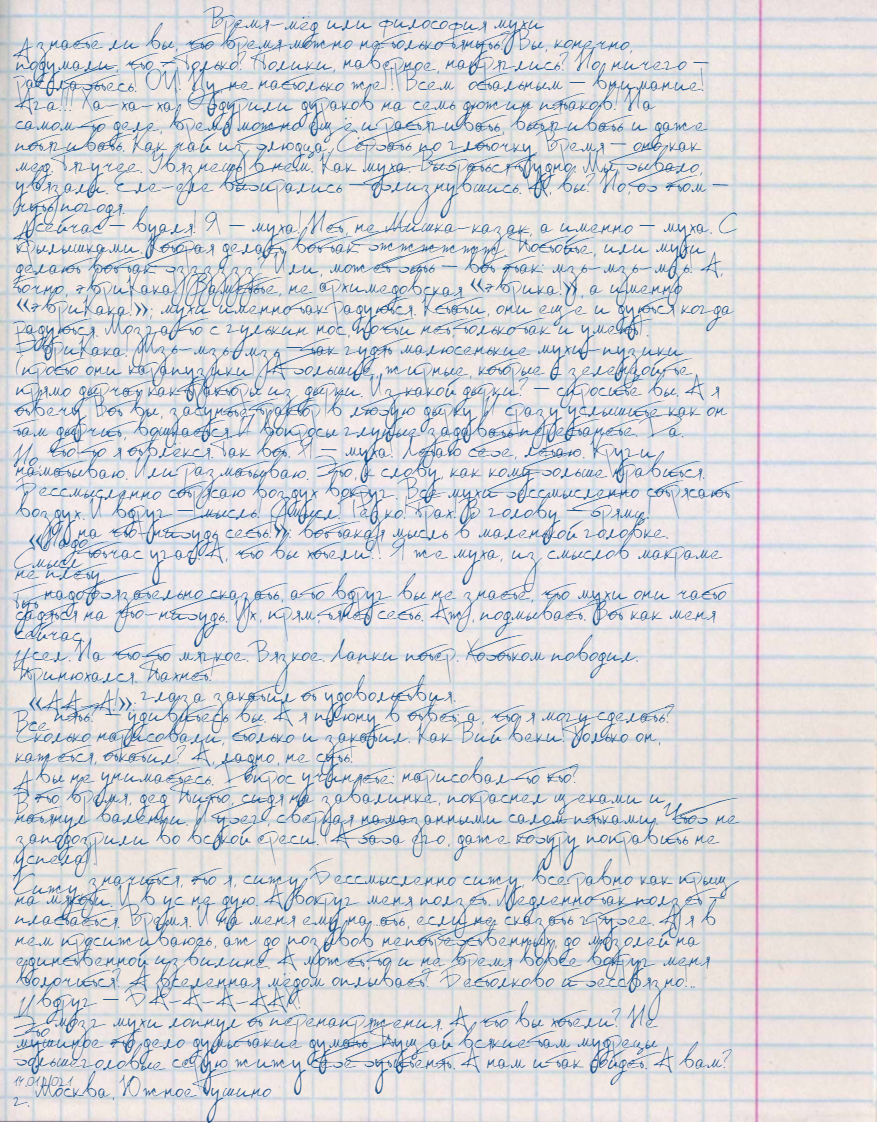 Время-мёд или философия мухи
А знаете ли вы, что время можно не только тянуть? Вы, конечно,
подумали, что – только? Голики, наверное, напряглись? Но, ничего –
расслабьтесь! ОЙ! Ну не настолько же!! Всем остальным – внимание!
Ага!!! Ха-ха-ха! дурили дураков на семь дюжин пятаков! На
самом-то деле, время можно ещё и растягивать, вытягивать и даже
потягивать. Как чай из блюдца. Сёрбать по глоточку. Время – оно как
мёд. Тягучее. Увязнешь в нем. Как муха. Выбраться трудно. Мы, бывало,
увязали. Еле-еле выбирались – облизнувшись. А, вы? Но, об этом –
чуть погодя.
А сейчас – вуаля! Я – муха! Нет, не Мишка-казак, а именно – муха. С
крылышками. Которая делает вот так: жжжжжжж. Постойте, или мухи
делают вот так: зззззззз? Или, может быть – вот так: мзь-мзь-мзь. А,
точно, эвриКака! Заметьте, не архимедовская «эврика!», а именно
«эвриКака!»: мухи именно так радуются. Кстати, они еще и дуются когда
радуются. Мозга-то с гулькин нос, почти не только так и умеют.
ЭвриКака! Мзь-мзь-мзь – так гудят малюсенькие мухи-пузики
(просто они карапузики). А большие, жирные, которые с зеленцой те
прямо дырчат как трактор из дырки. Из какой дырки? – спросите вы. А я
отвечу: Вот вы, засуньте трактор в любую дырку. И сразу услышите как он
там дырчит, возмущается. И вопросы глупые задавать перестанете. Да.
Но что-то я отвлекся. Так вот. Я – муха! Летаю себе, летаю. Круги
наматываю. Или разматываю. Это, к слову, как кому больше нравится.
Бессмысленно сотрясаю воздух вокруг. Все мухи бессмысленно сотрясают
воздух. И вдруг – мысль. Смысл! Редко! Трах! В голову – прямо!
«Надо на что-нибудь сесть.»: вот такая мысль в маленькой головке.
Смысл тотчас угас! А, что вы хотели!! Я же муха, из смыслов макраме
не плету.
Тут надо обязательно сказать, а то вдруг вы не знаете, что мухи они часто
садятся на что-нибудь. Их, прям, тянет сесть. Аж, подмывает. Вот как меня
сейчас.
И сел. На что-то мягкое. Вязкое. Лапки потер. Хоботком поводил.
Принюхался. Пахнет!
«АА-А!»: глаза закатил от удовольствия.
Все пять! – удивитесь вы. А я плюну в ответ: а, что я могу сделать?
Сколько нарисовали, столько и закатил. Как Вий веки. Только он,
кажется, откатил? А, ладно, не суть!
А вы не унимаетесь. Вопрос учиняете: нарисовал-то кто?
В это время, дед Пихто, сидя на завалинке, покраснел щеками и
натянул валенки. Утёк сверкая намазанными салом пятками. Чтоб не
заподозрили во всякой ереси. (А баба его, даже кобуру поправить не
успела)!
Сижу, значится, то я, сижу. Бессмысленно сижу, все равно как прыщ
на мякоти. И в ус не дую. А вокруг меня ползет. Медленно так ползет –
пластается. Время. И на меня ему на ять, если не сказать грубее. А я в
нем просиживаюсь, аж до позывов непотребственных, до мозолей на
единственной извилине. А может, то и не время вовсе вокруг меня
волочится? А вселенная мёдом оплывает? Бестолково и бессвязно!..
И вдруг – БА-А-А-А-АА!!
Это мозг мухи лопнул от перенапряжения. А, что вы хотели? Не
мушиное это дело думы такие думать. Пущай всякие там мудрецы
большеголовые серую жижу свою студенят. А нам и так сойдет. А вам?
14.01.2021
г. Москва, Южное Тушино